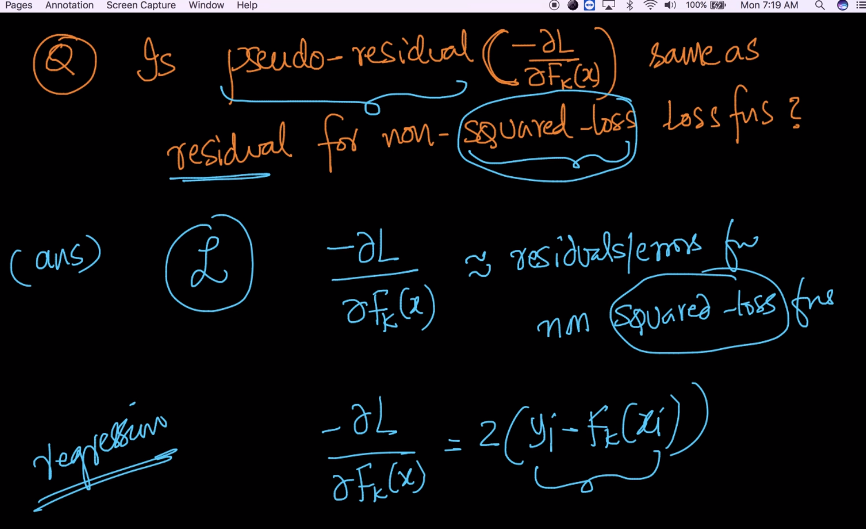 Pages Annotation Screen Capture Window Help 100% Mon 7:19 AM
Q Is pseudo-residual (-∂L/∂F_K(x)) same as
residual for non-squared-loss loss fns?
(ans) L -∂L/∂F_K(x) ≈ residuals/errors for
non squared-loss fns
regression -∂L/∂F_K(x) = 2(y_i - F_K(x_i))